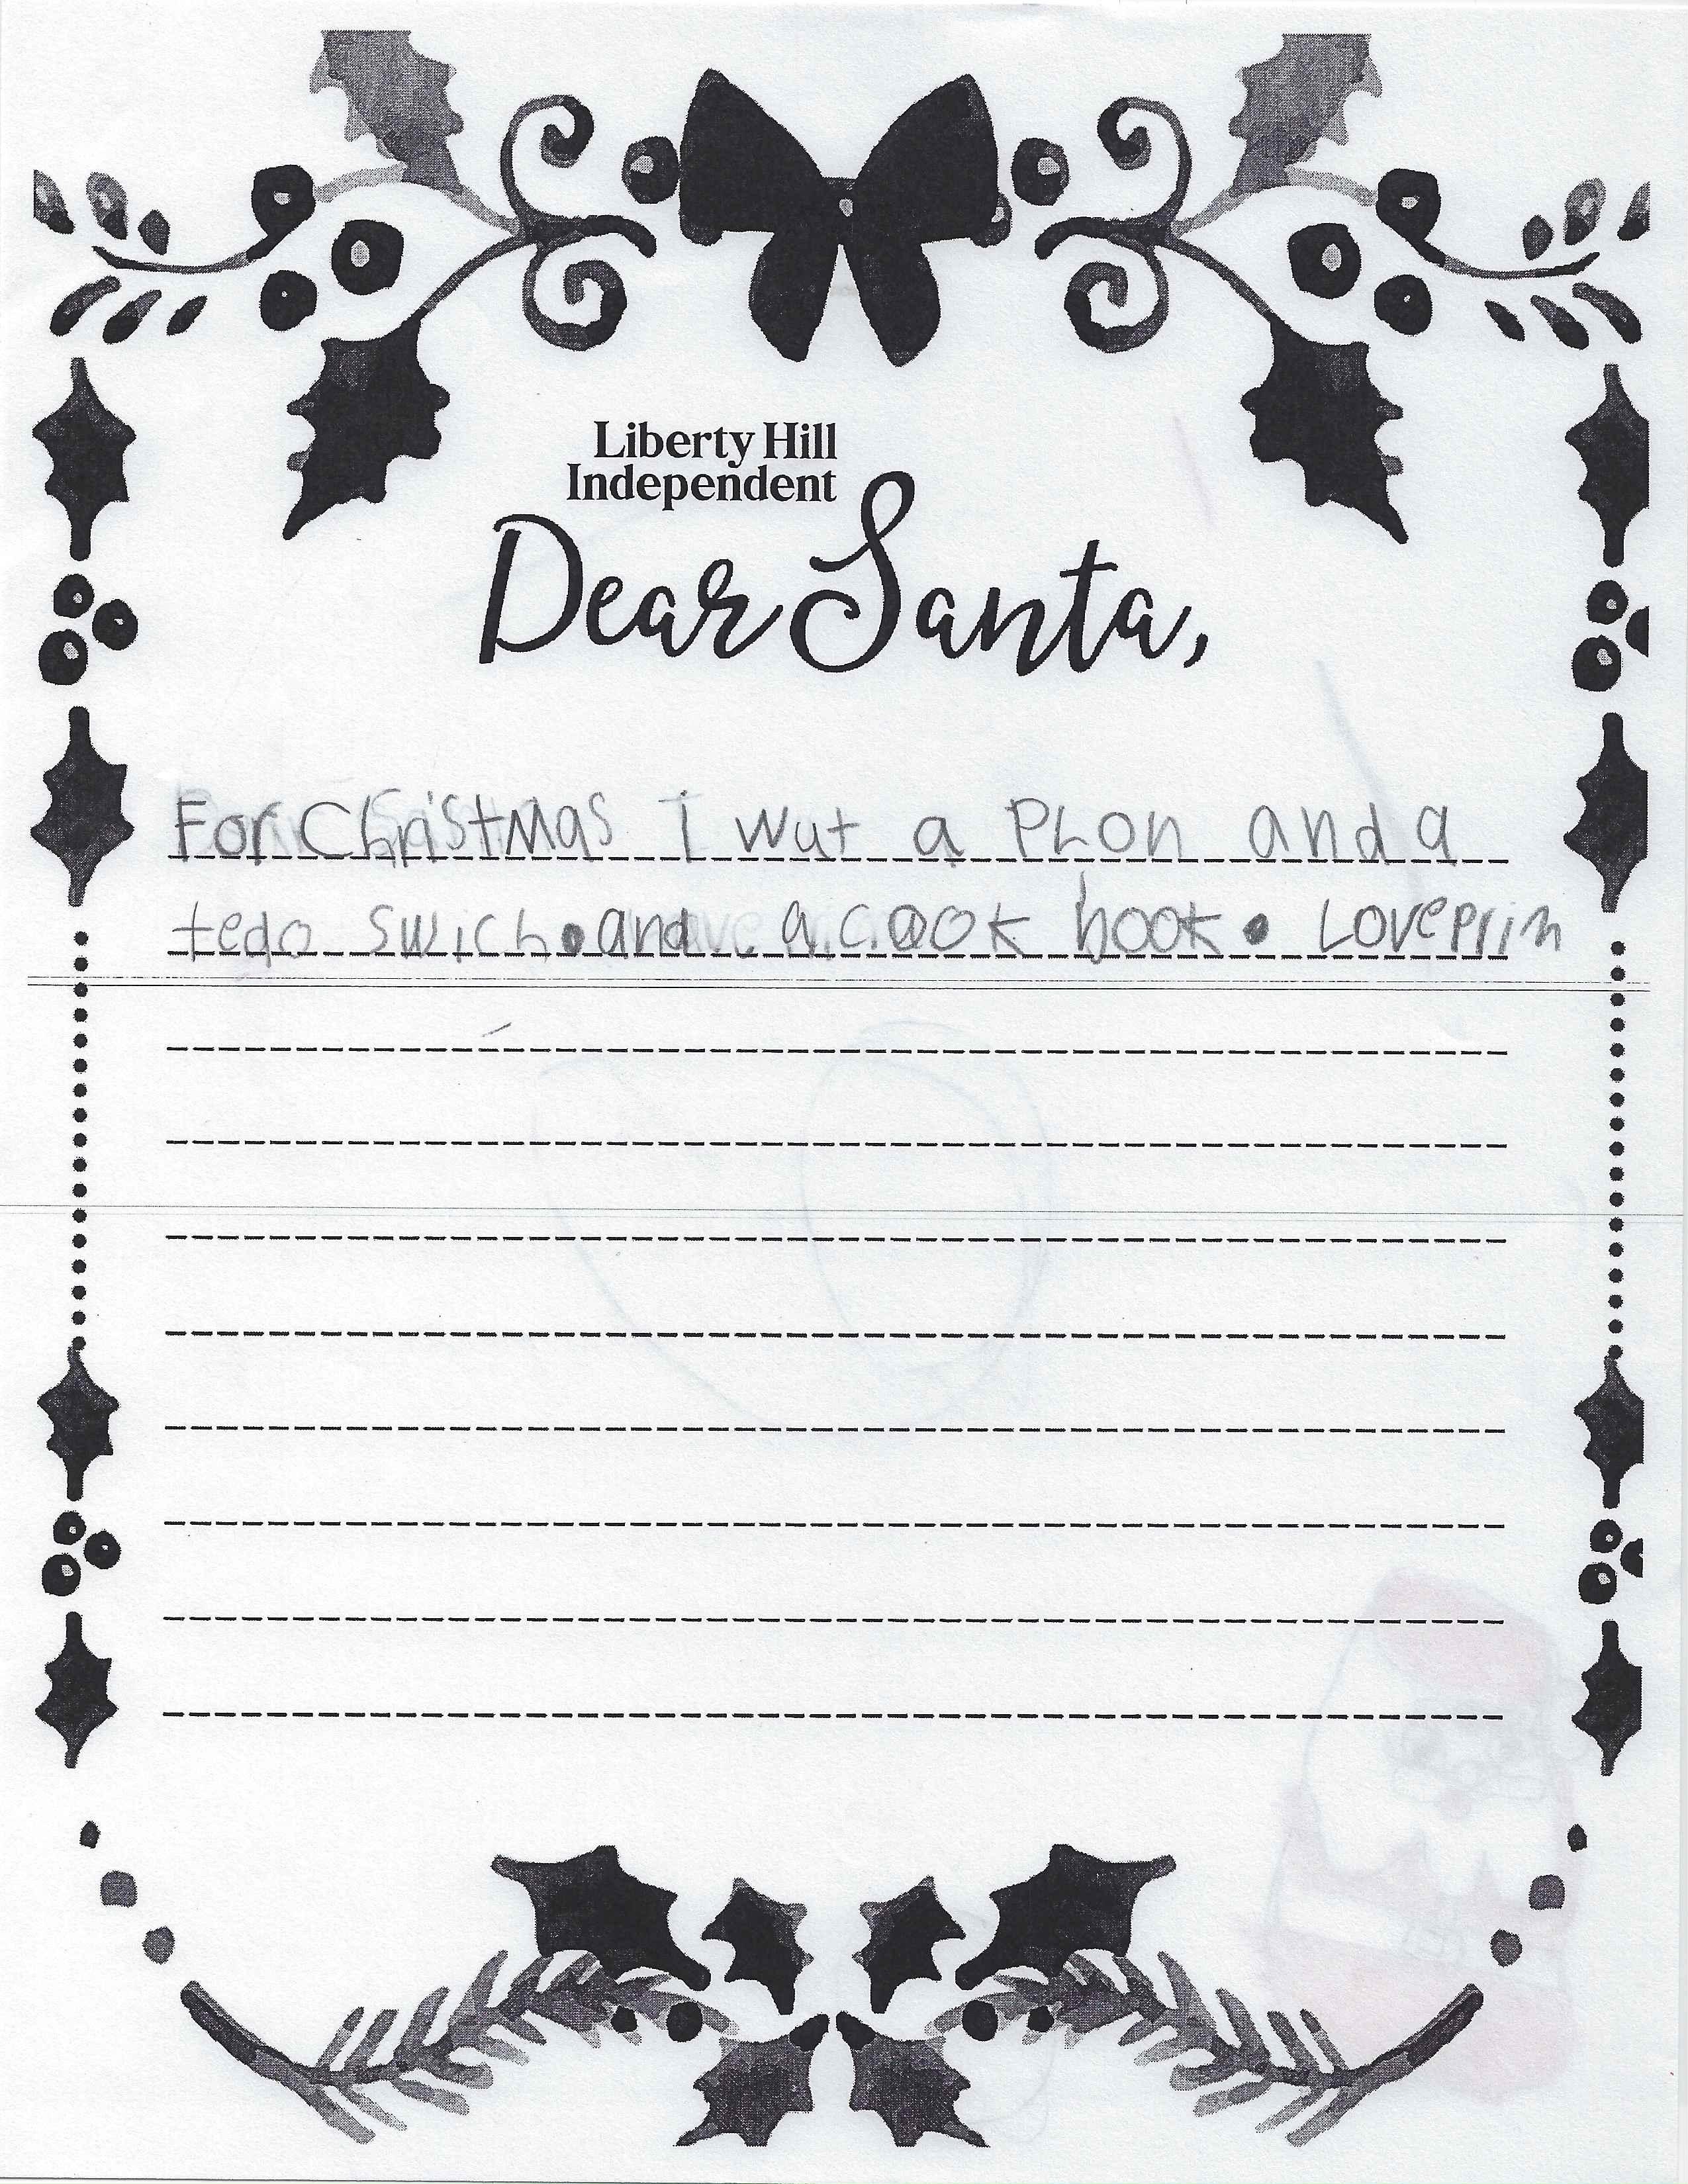 Liberty Hill
Independent
Dear Santa,
For Christmas I wut a Phon and a
tedo swich. and a cook book. Love prim